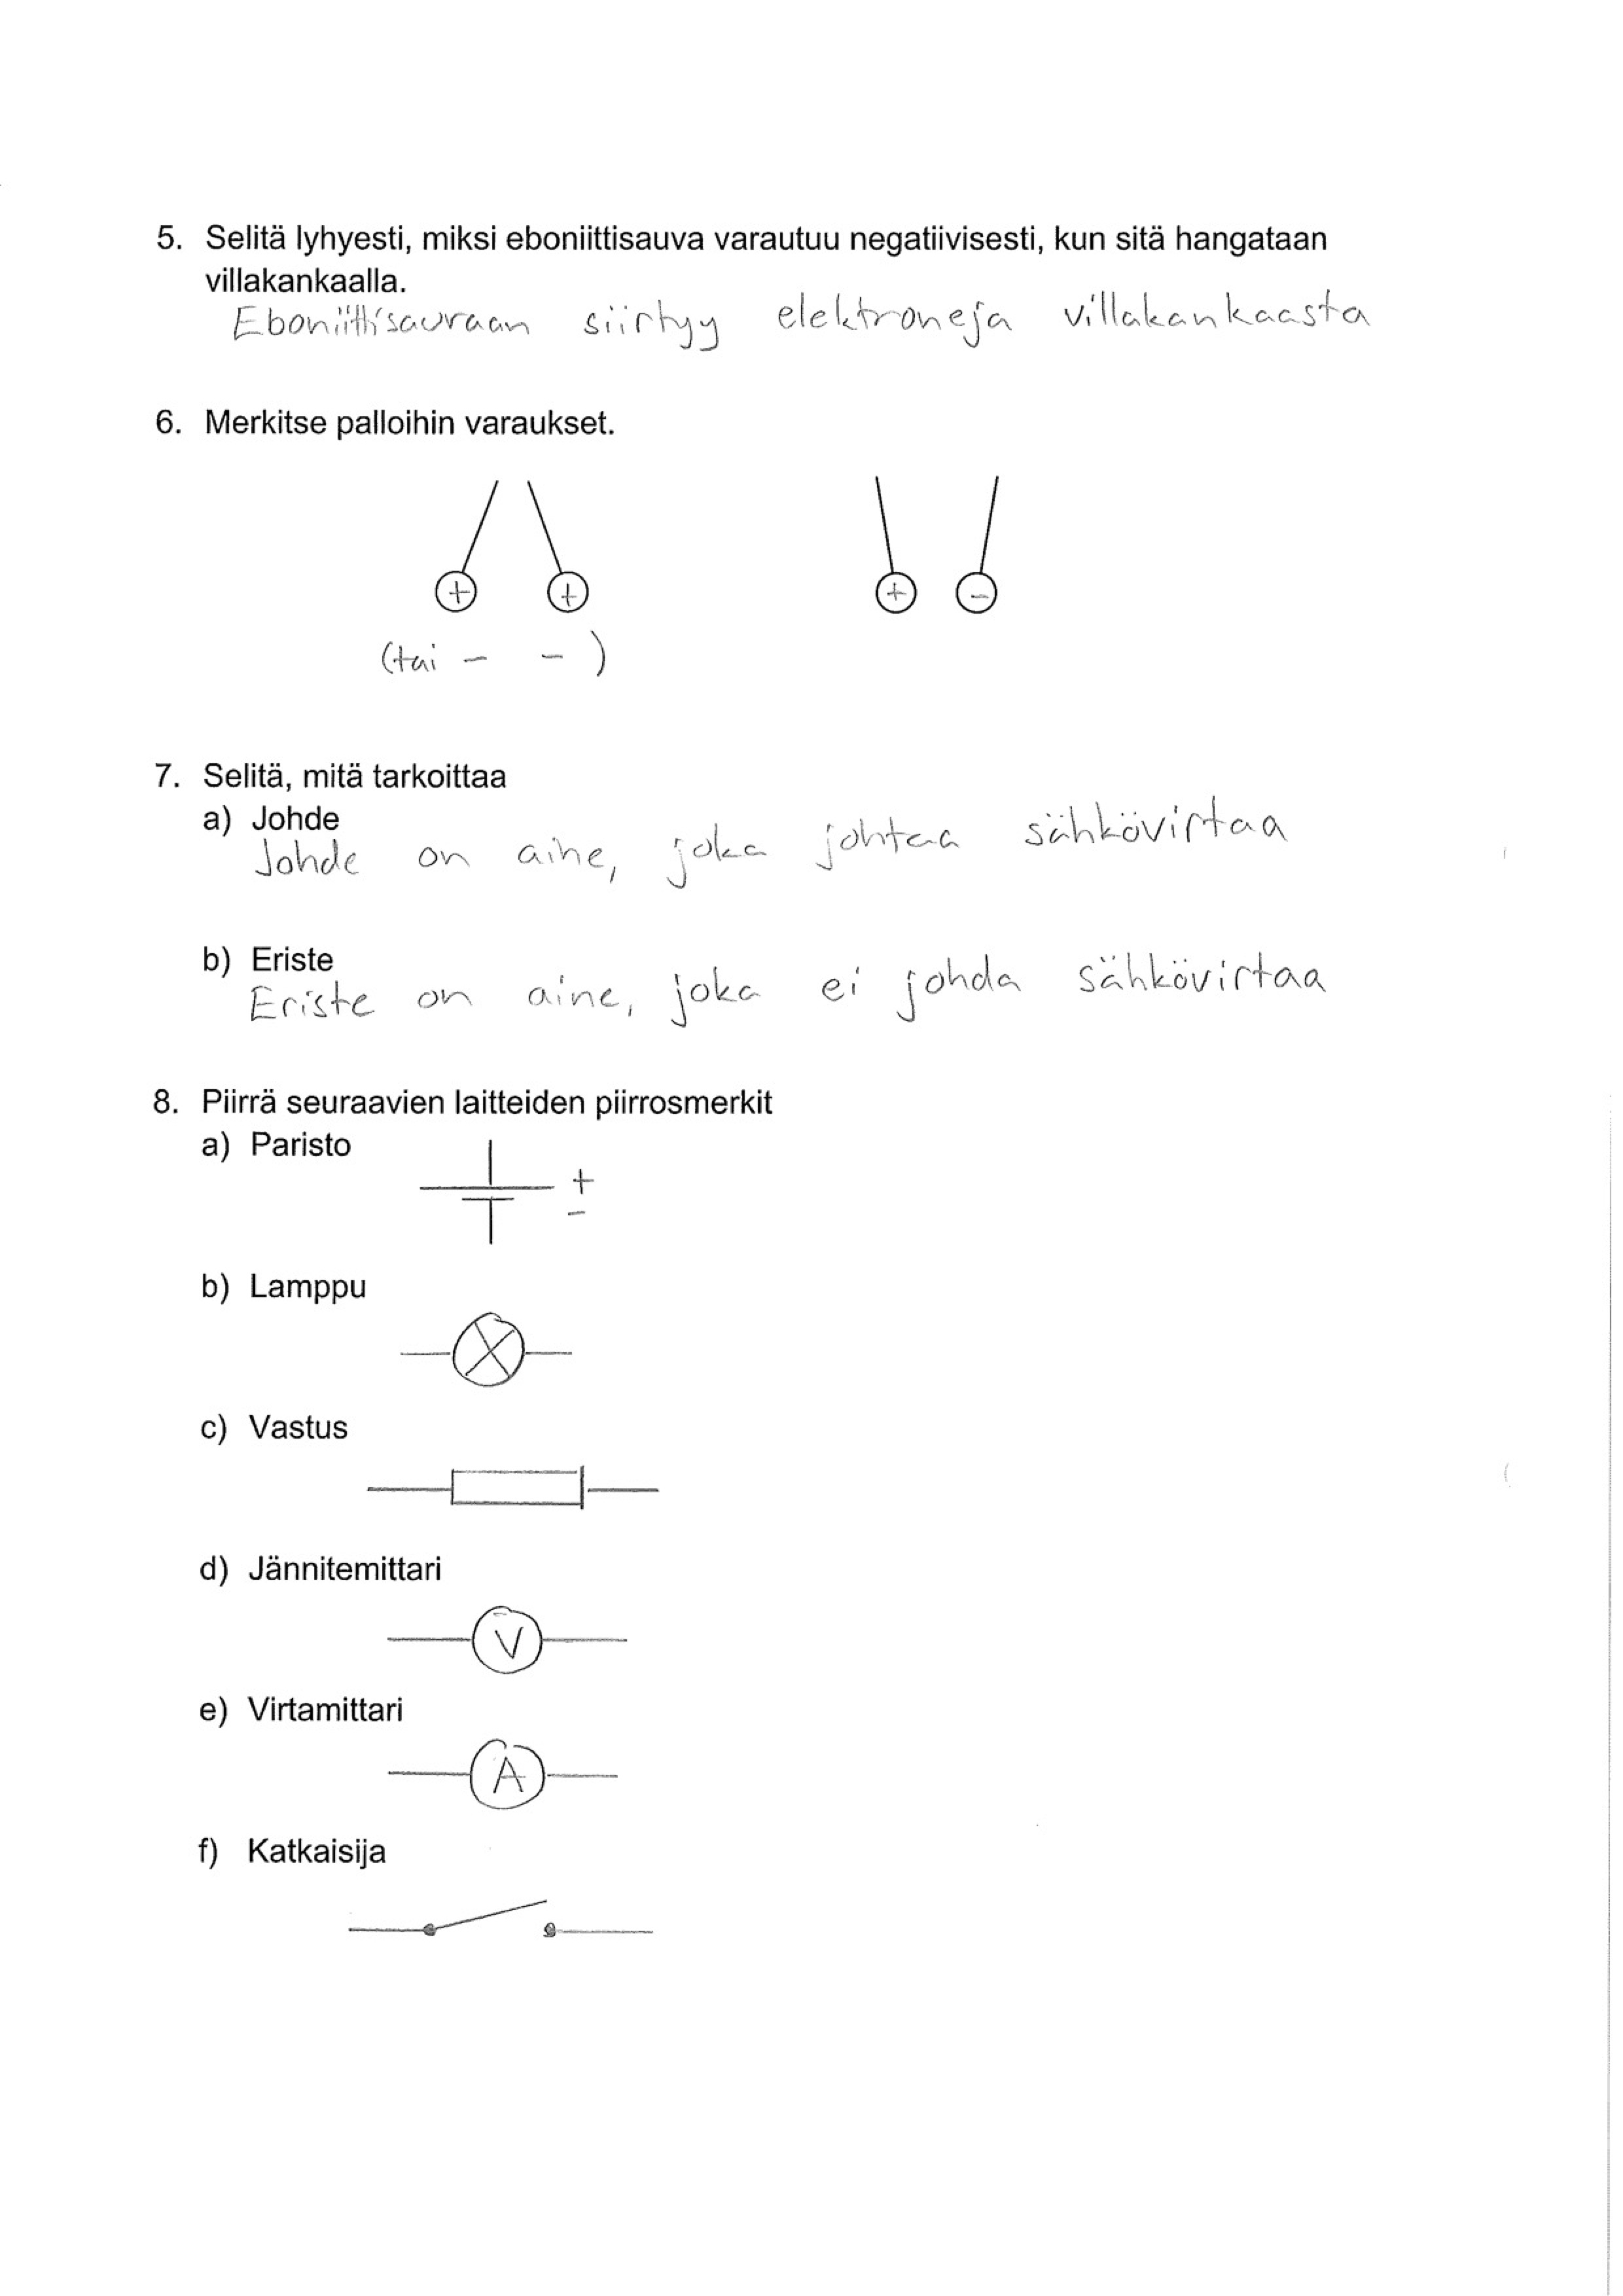 5. Selitä lyhyesti, miksi eboniittisauva varautuu negatiivisesti, kun sitä hangataan
villakankaalla.
Eboniittisauvaan siirtyy elektroneja villakankaasta
6. Merkitse palloihin varaukset.
+ + + -
(tai - - )
7. Selitä, mitä tarkoittaa
a) Johde
Johde on aine, joka johtaa sähkövirtaa
b) Eriste
Eriste on aine, joka ei johda sähkövirtaa
8. Piirrä seuraavien laitteiden piirrosmerkit
a) Paristo
+
-
b) Lamppu
c) Vastus
d) Jännitemittari
V
e) Virtamittari
A
f) Katkaisija